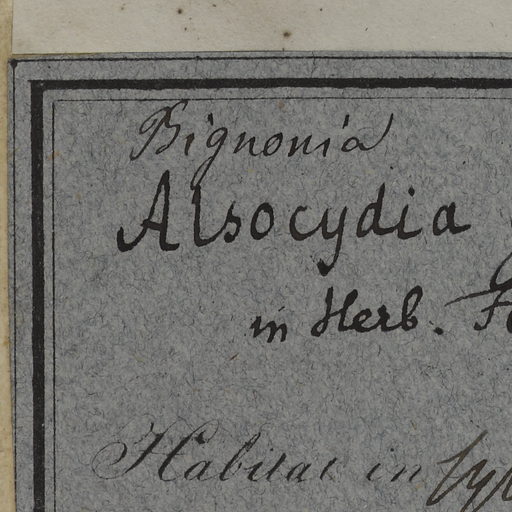 Bignonia
Alsocydia
in Herb.
Habitat in